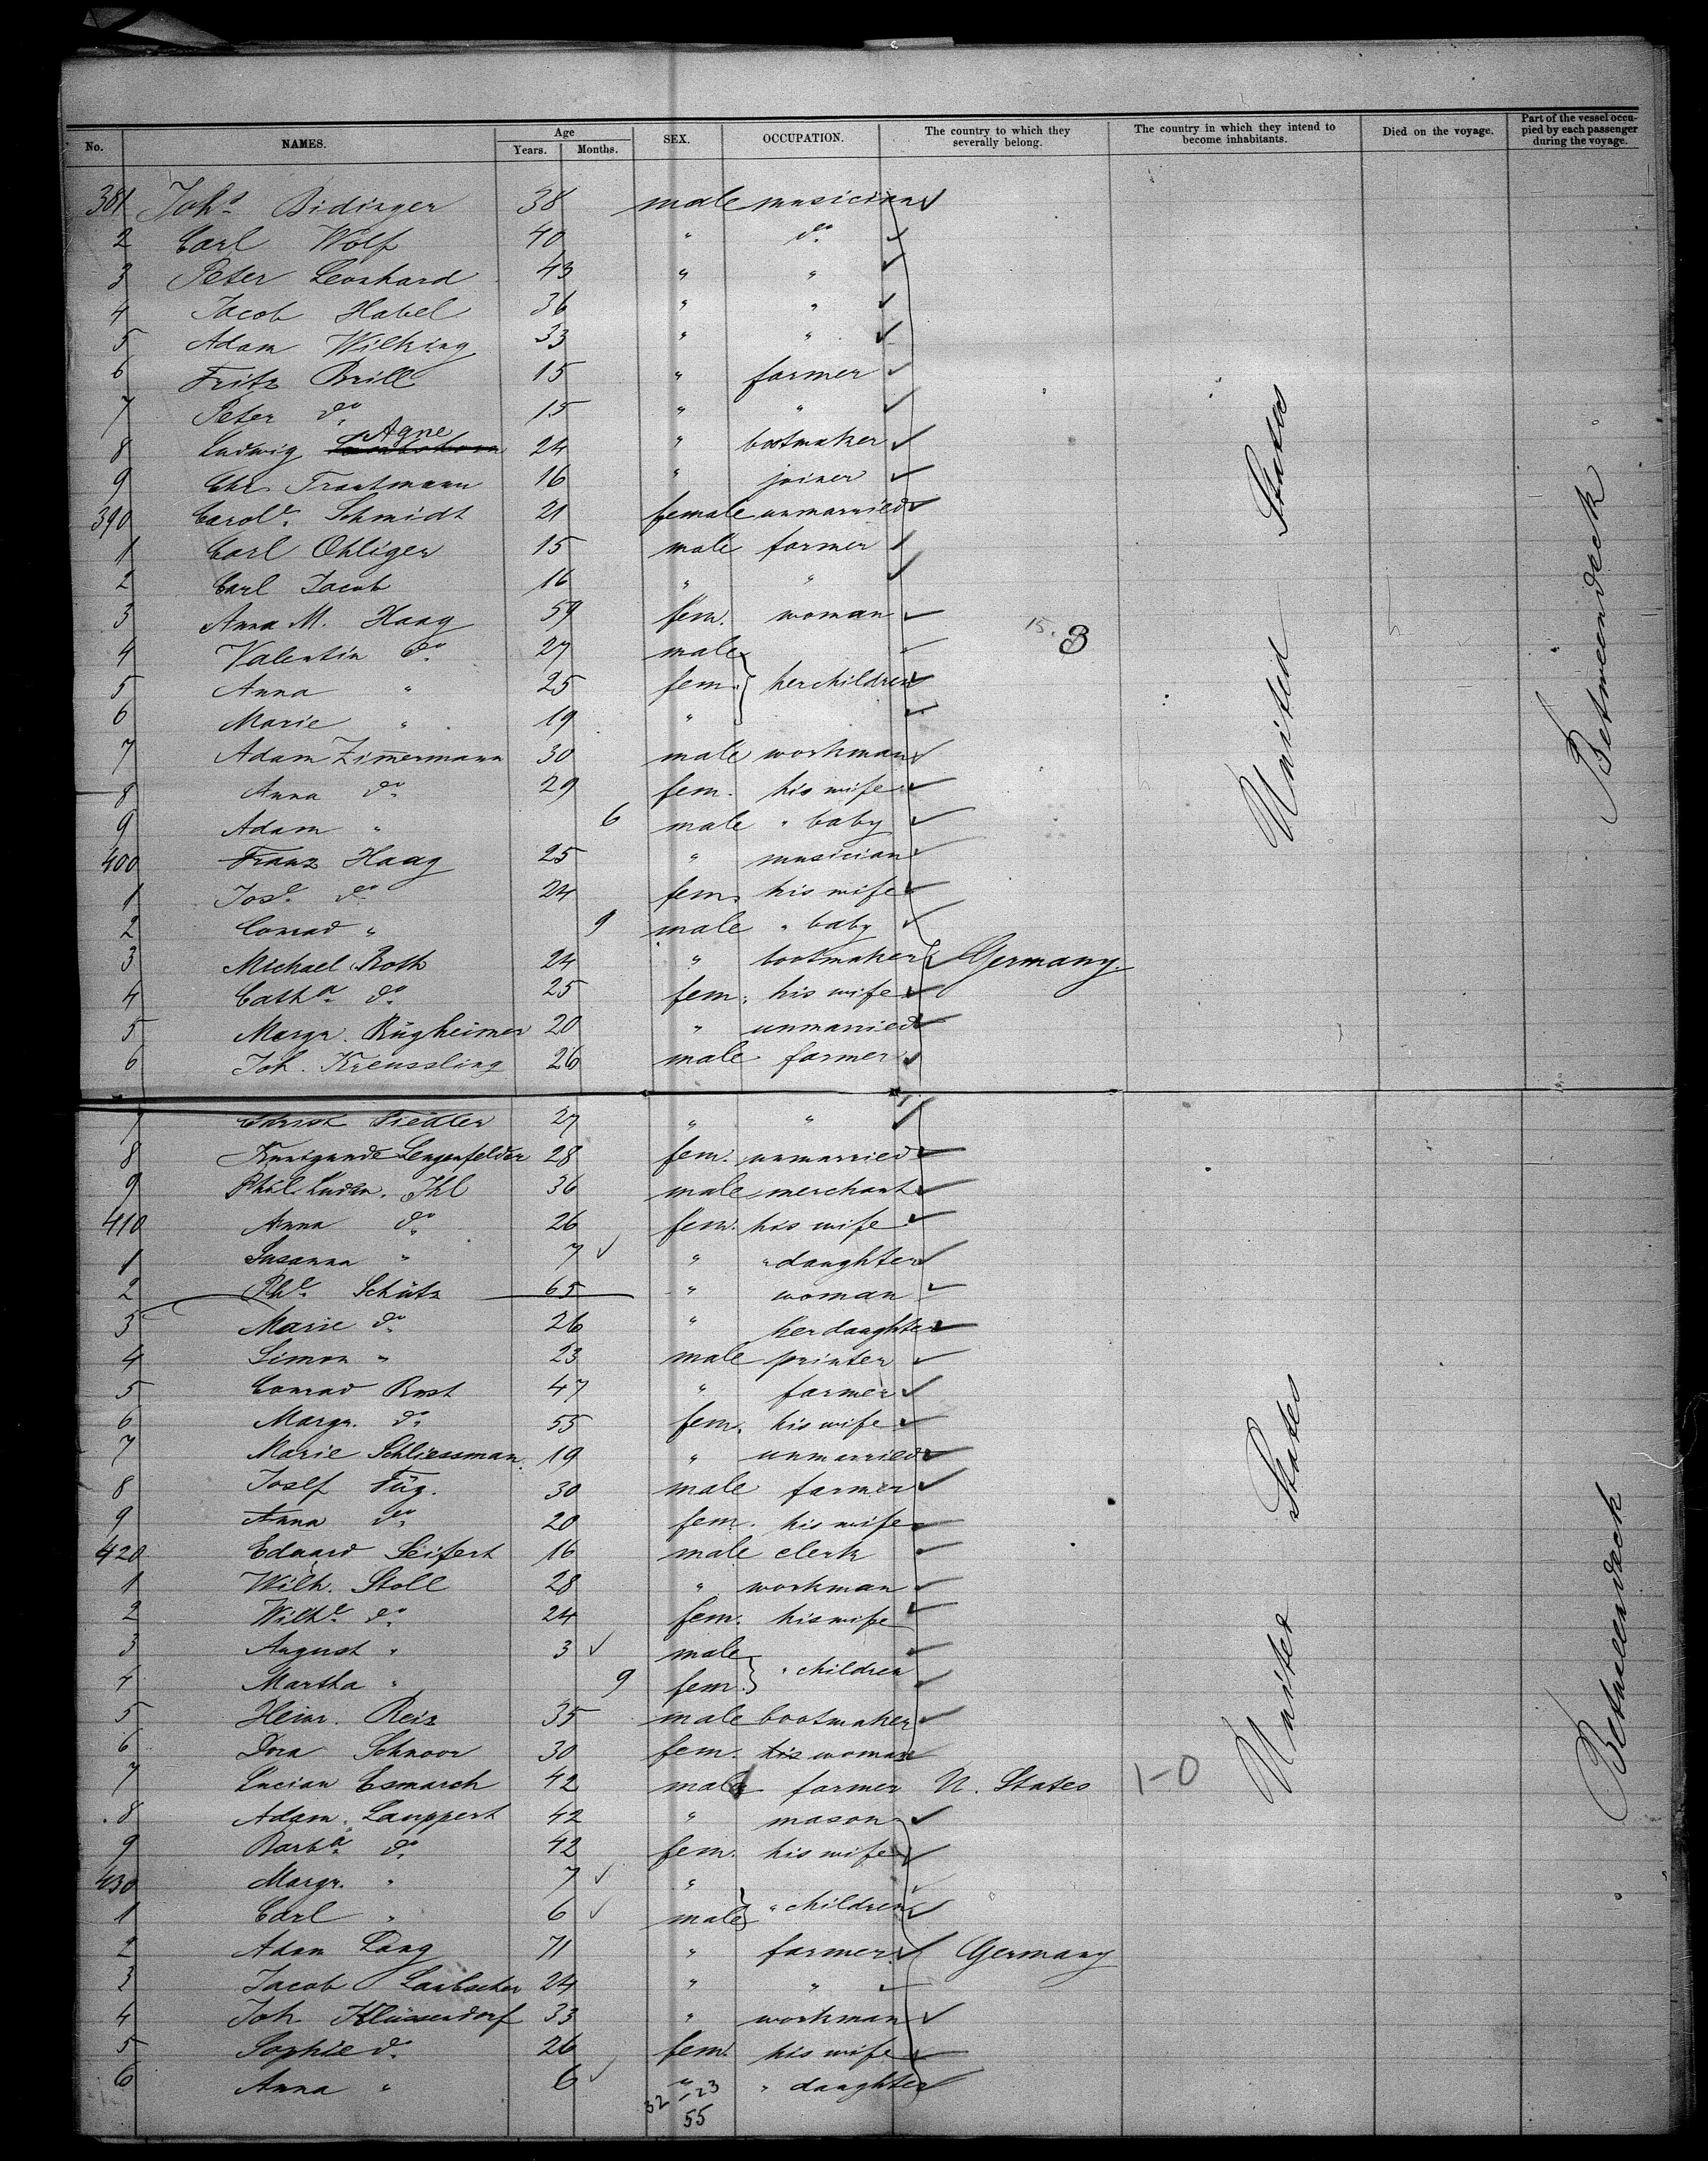 No. NAMES. Age Years. Months. SEX. OCCUPATION. The country to which they severally belong. The country in which they intend to become inhabitants. Died on the voyage. Part of the vessel occupied by each passenger during the voyage.
381 Johs. Bidinger 38 male musician
2 Carl Wolf 40 " do
3 Peter Leonhard 43 " "
4 Jacob Habel 36 " "
5 Adam Wilking 33 " "
6 Fritz Brill 15 " farmer
7 Peter do 15 " "
8 Ludwig Agne 24 " bootmaker
9 Chr. Trautmann 16 " joiner
390 Carole. Schmidt 21 female unmarried
1 Carl Ohliger 15 male farmer
2 Carl Jacob 16 " "
3 Anna M. Haag 59 fem. woman
15. 3
4 Valentin do 27 male
5 Anna " 25 fem. her children
6 Marie " 19 "
7 Adam Zimermann 30 male workman
8 Anna do 29 fem. his wife
9 Adam " 6 male " baby
400 Franz Haag 25 " musician
1 Jose. do 24 fem. his wife
2 Conrad " 9 male " baby
3 Michael Roth 24 " bootmaker Germany.
4 Catha. do 25 fem. his wife
5 Margr. Rügheimer 20 " unmarried
6 Joh. Kreussling 26 male farmer
United States
Betweendeck
7 Christ Fiedler 27 " "
8 Kunigunde Lengenfelder 28 fem. unmarried
9 Phil. Ludw. Ihl 36 male merchant
410 Anna do 26 fem. his wife
1 Susanna " 7 " " daughter
2 Phe. Schütz 65 " woman
3 Marie do 26 " her daughter
4 Simon " 23 male printer
5 Conrad Rost 47 " farmer
6 Margr. do 55 fem. his wife
7 Marie Schliessman. 19 " unmarried
8 Josef Füg. 30 male farmer
9 Anna do 20 fem. his wife
420 Eduard Seifert 16 male clerk
1 Wilh. Stoll 28 " workman
2 Wilhe. do 24 fem. his wife
3 August " 3 male
4 Martha " 9 fem. " children
5 Heinr. Reiz 35 male bootmaker
6 Dora Schnoor 30 fem. his woman
7 Lucian Esmarch 42 male farmer U. States 1-0
8 Adam Lauppert 42 " mason
9 Barba. do 42 fem. his wife
430 Margr. " 7 "
1 Carl " 6 male " children
2 Adam Lang 71 " farmer Germany
3 Jacob Laubscher 24 " "
4 Joh Klüssendorf 33 " workman
5 Sophie do 26 fem. his wife
6 Anna " 6 " " daughter
United States
Betweendeck
32 - 23
55